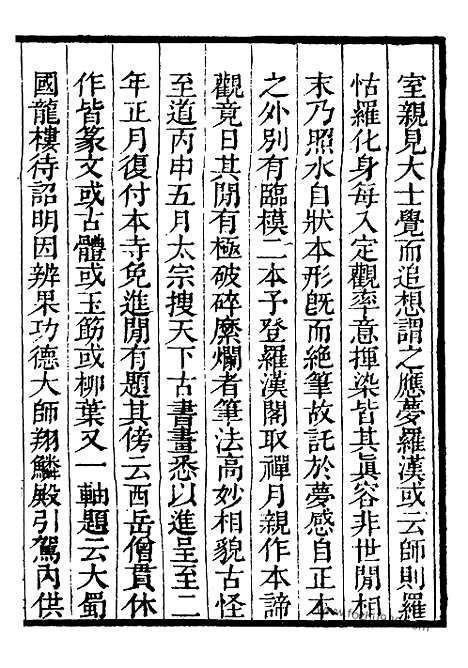 室親見大士覺而追想謂之應夢羅漢或云師則羅
怙羅化身每入定觀率意揮染皆其眞容非世閒相
末乃照水自狀本形旣而絕筆故託於夢感自正本
之外別有臨模二本予登羅漢閣取禪月親作本諦
觀竟日其閒有極破碎糜爛者筆法高妙相貌古怪
至道丙申五月太宗搜天下古書畫悉以進呈至二
年正月復付本寺免進閒有題其傍云西岳僧貫休
作皆篆文或古體或玉筯或柳葉又一軸題云大蜀
國龍樓待詔明因辨果功德大師翔麟殿引駕內供